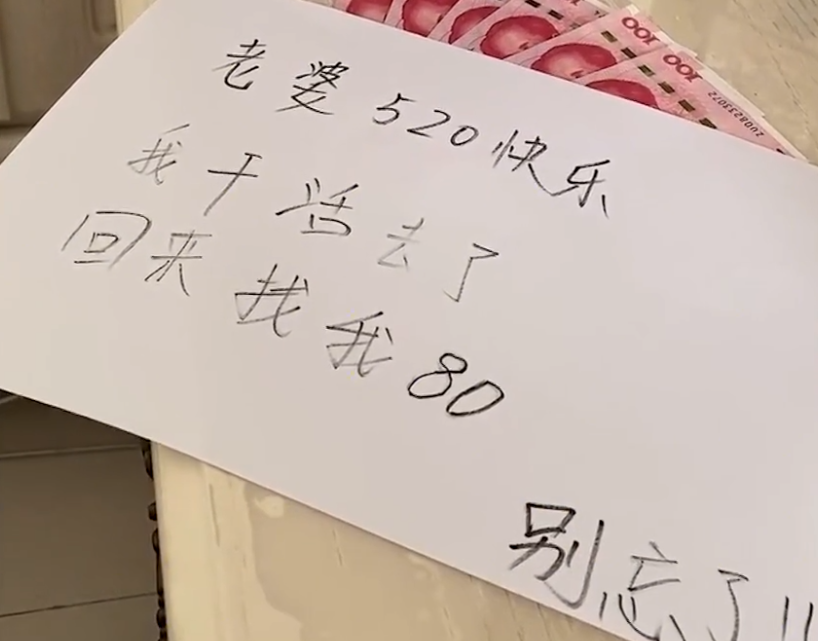 老婆520快乐
我干活去了
回来找我80
别忘了!!
100
100
ZU08233072